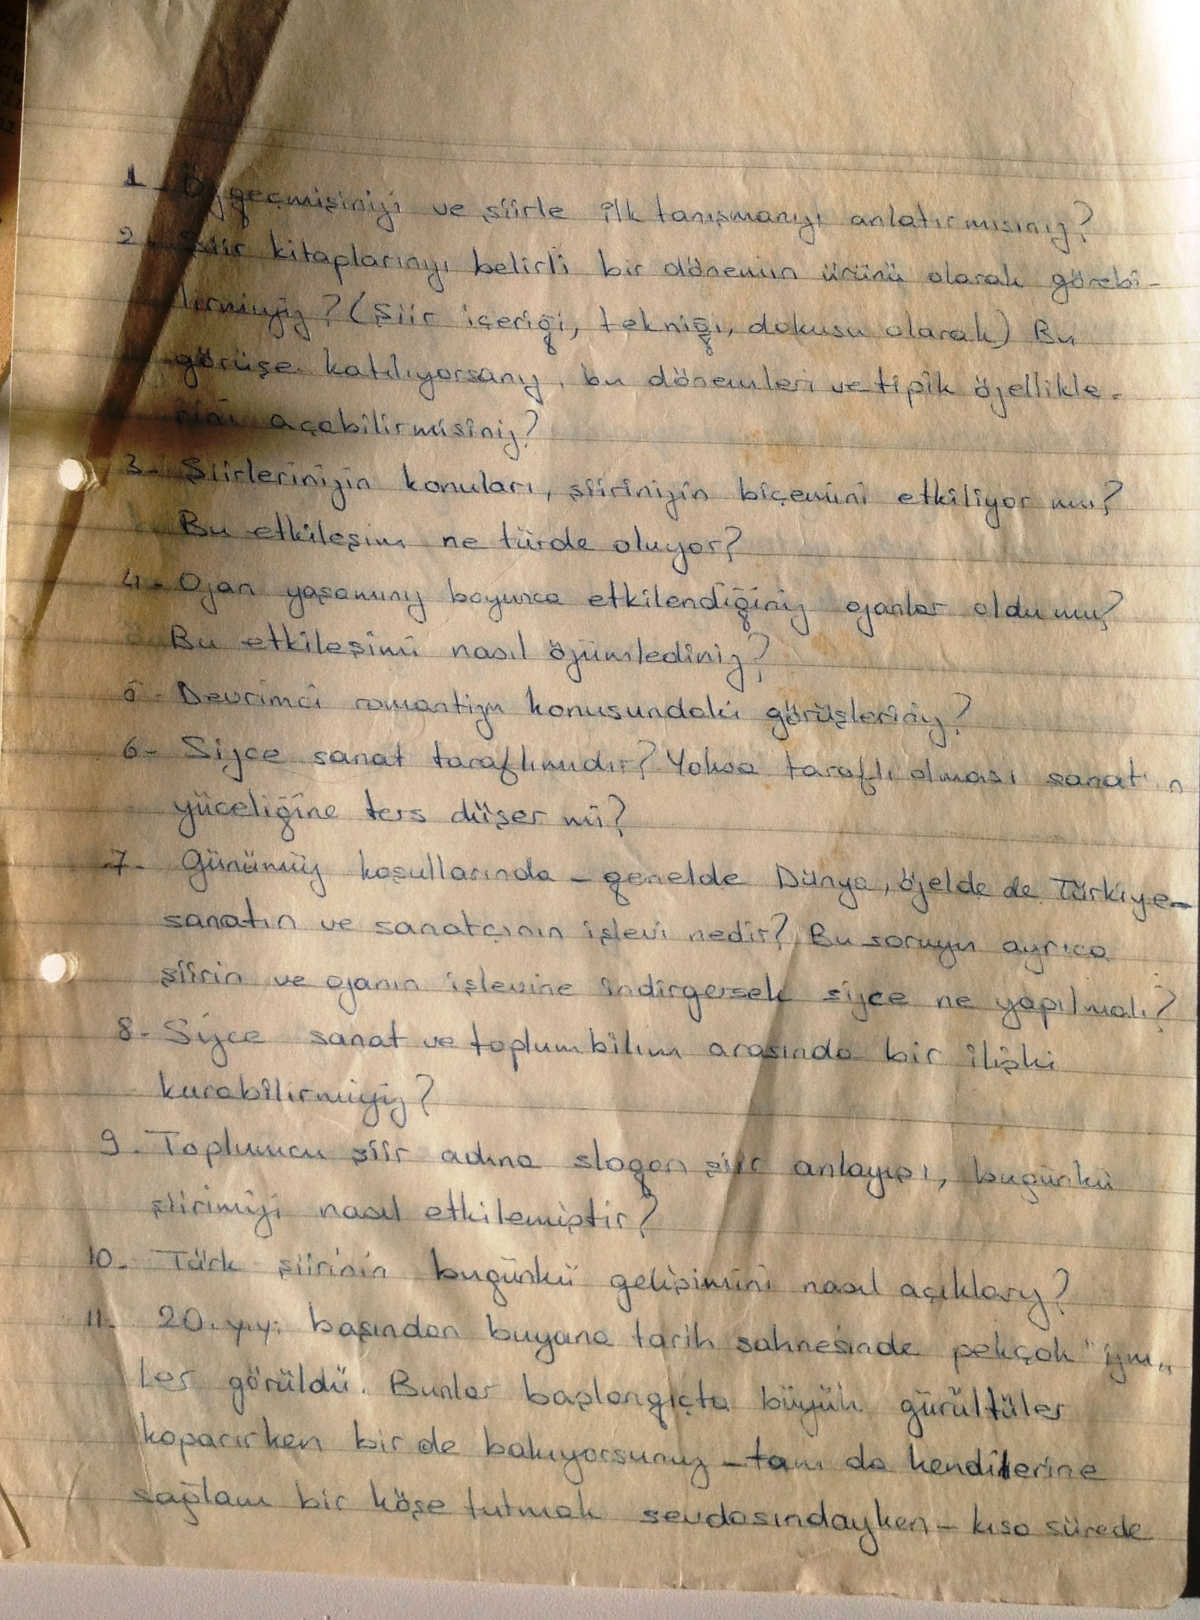 1 - Özgeçmişinizi ve şiirle ilk tanışmanızı anlatırmısınız?
2 - Şiir kitaplarınızı belirli bir dönemin ürünü olarak görebi-
lirmiyiz? (Şiir içeriği, tekniği, dokusu olarak) Bu
görüşe katılıyorsanız, bu dönemleri ve tipik özellikle-
rini açabilirmisiniz?
3 - Şiirlerinizin konuları, şiirinizin biçemini etkiliyor mu?
Bu etkileşim ne türde oluyor?
4 - Ozan yaşamınız boyunca etkilendiğiniz ozanlar oldu mu?
Bu etkileşimi nasıl özümlediniz?
5 - Devrimci romantizm konusundaki görüşleriniz?
6 - Sizce sanat taraflımıdır? Yoksa taraflı olması sanatın
yüceliğine ters düşer mi?
7 - Günümüz koşullarında - genelde Dünya, özelde de Türkiye -
sanatın ve sanatçının işlevi nedir? Bu soruyu ayrıca
şiirin ve ozanın işlevine indirgersek sizce ne yapılmalı?
8 - Sizce sanat ve toplumbilim arasında bir ilişki
kurabilirmiyiz?
9 - Toplumcu şiir adına slogan şiir anlayışı, bugünkü
şiirimizi nasıl etkilemiştir?
10 - Türk şiirinin bugünkü gelişimini nasıl açıklarız?
11 - 20. yy. başından buyana tarih sahnesinde pekçok "izm"
ler görüldü. Bunlar başlangıçta büyük gürültüler
koparırken bir de bakıyorsunuz - tam da kendilerine
sağlam bir köşe tutmak sevdasındayken - kısa sürede